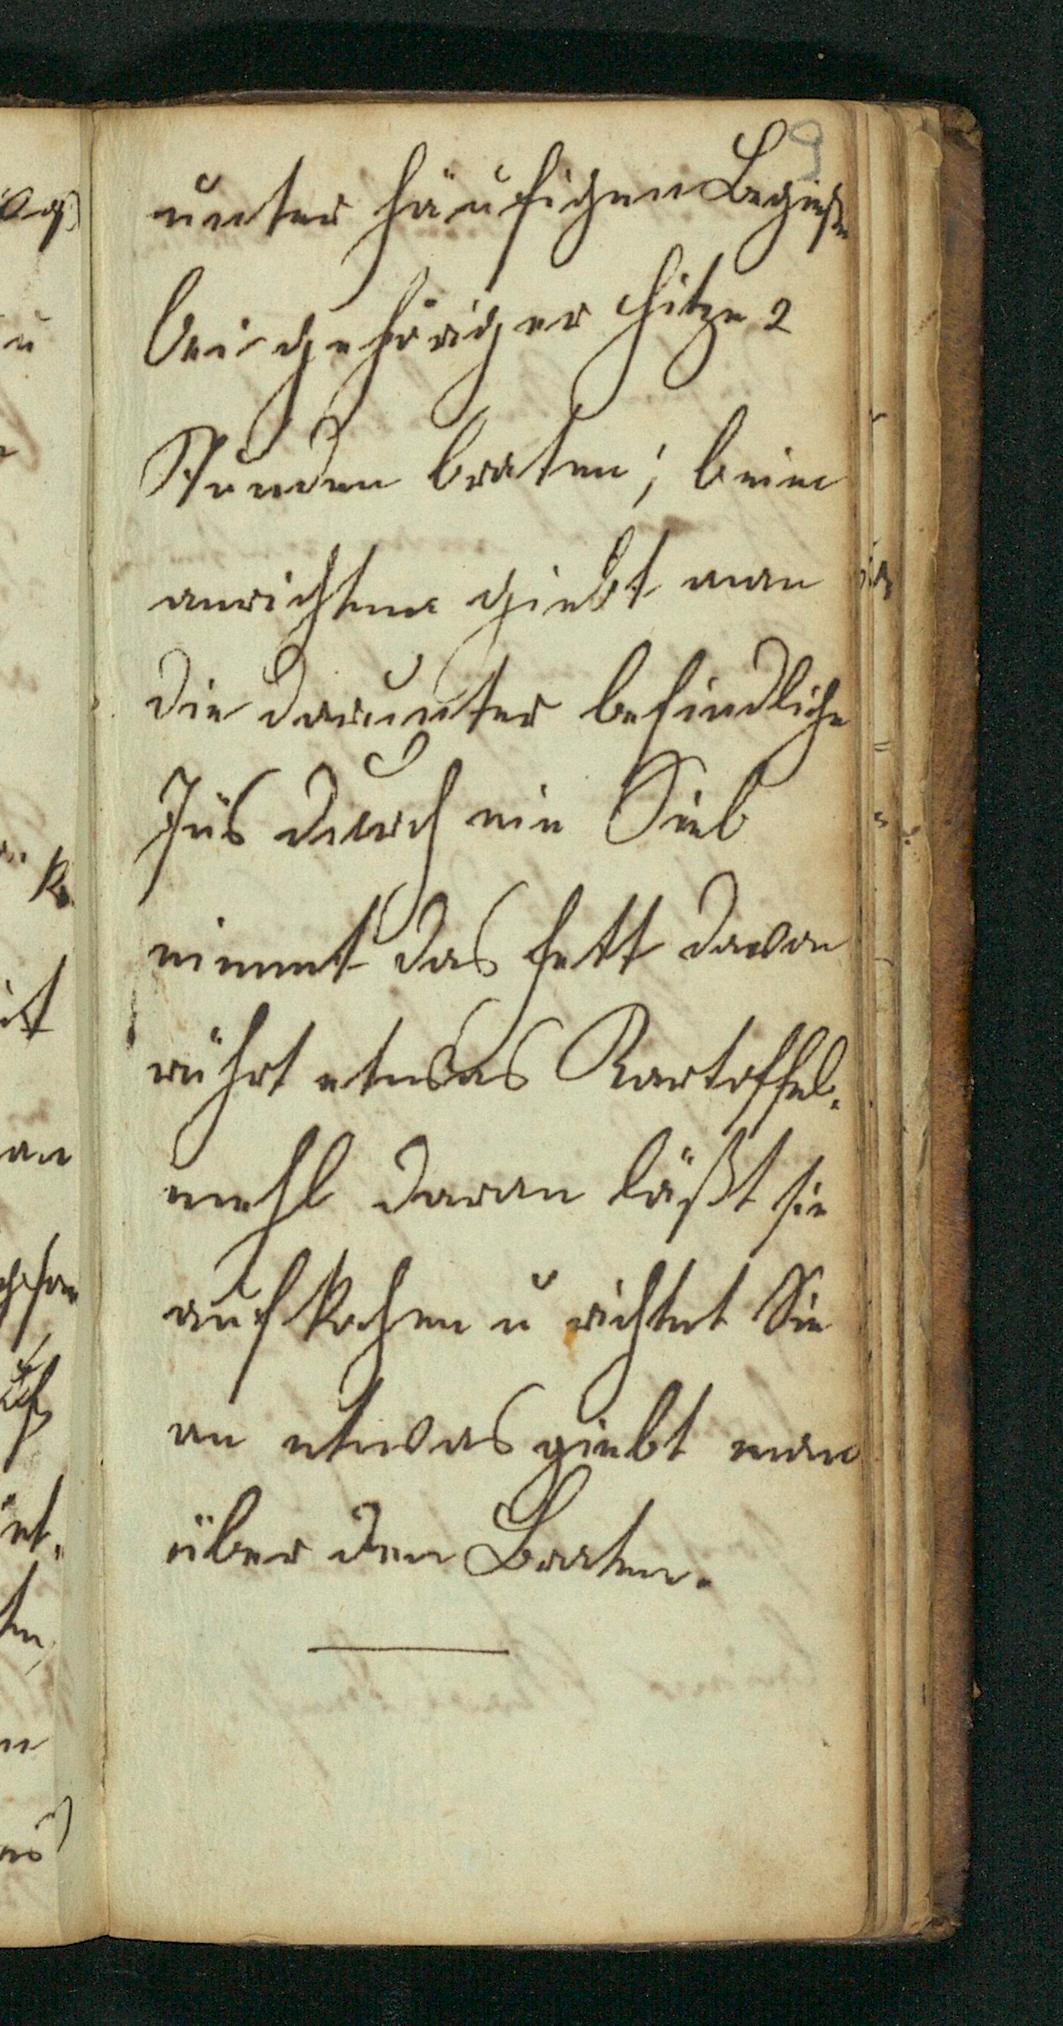 9
unter häufigen Begießen
bei gehöriger Hitze 2
Stunden braten; beim
anrichten giebt man
die darunter befindliche
Jüs durch ein Sieb
nimmt das Fett davon
rührt etwas Kartoffel-
mehl daran läßt sie
aufkochen u richtet Sie
an etwas giebt man
über den Braten.